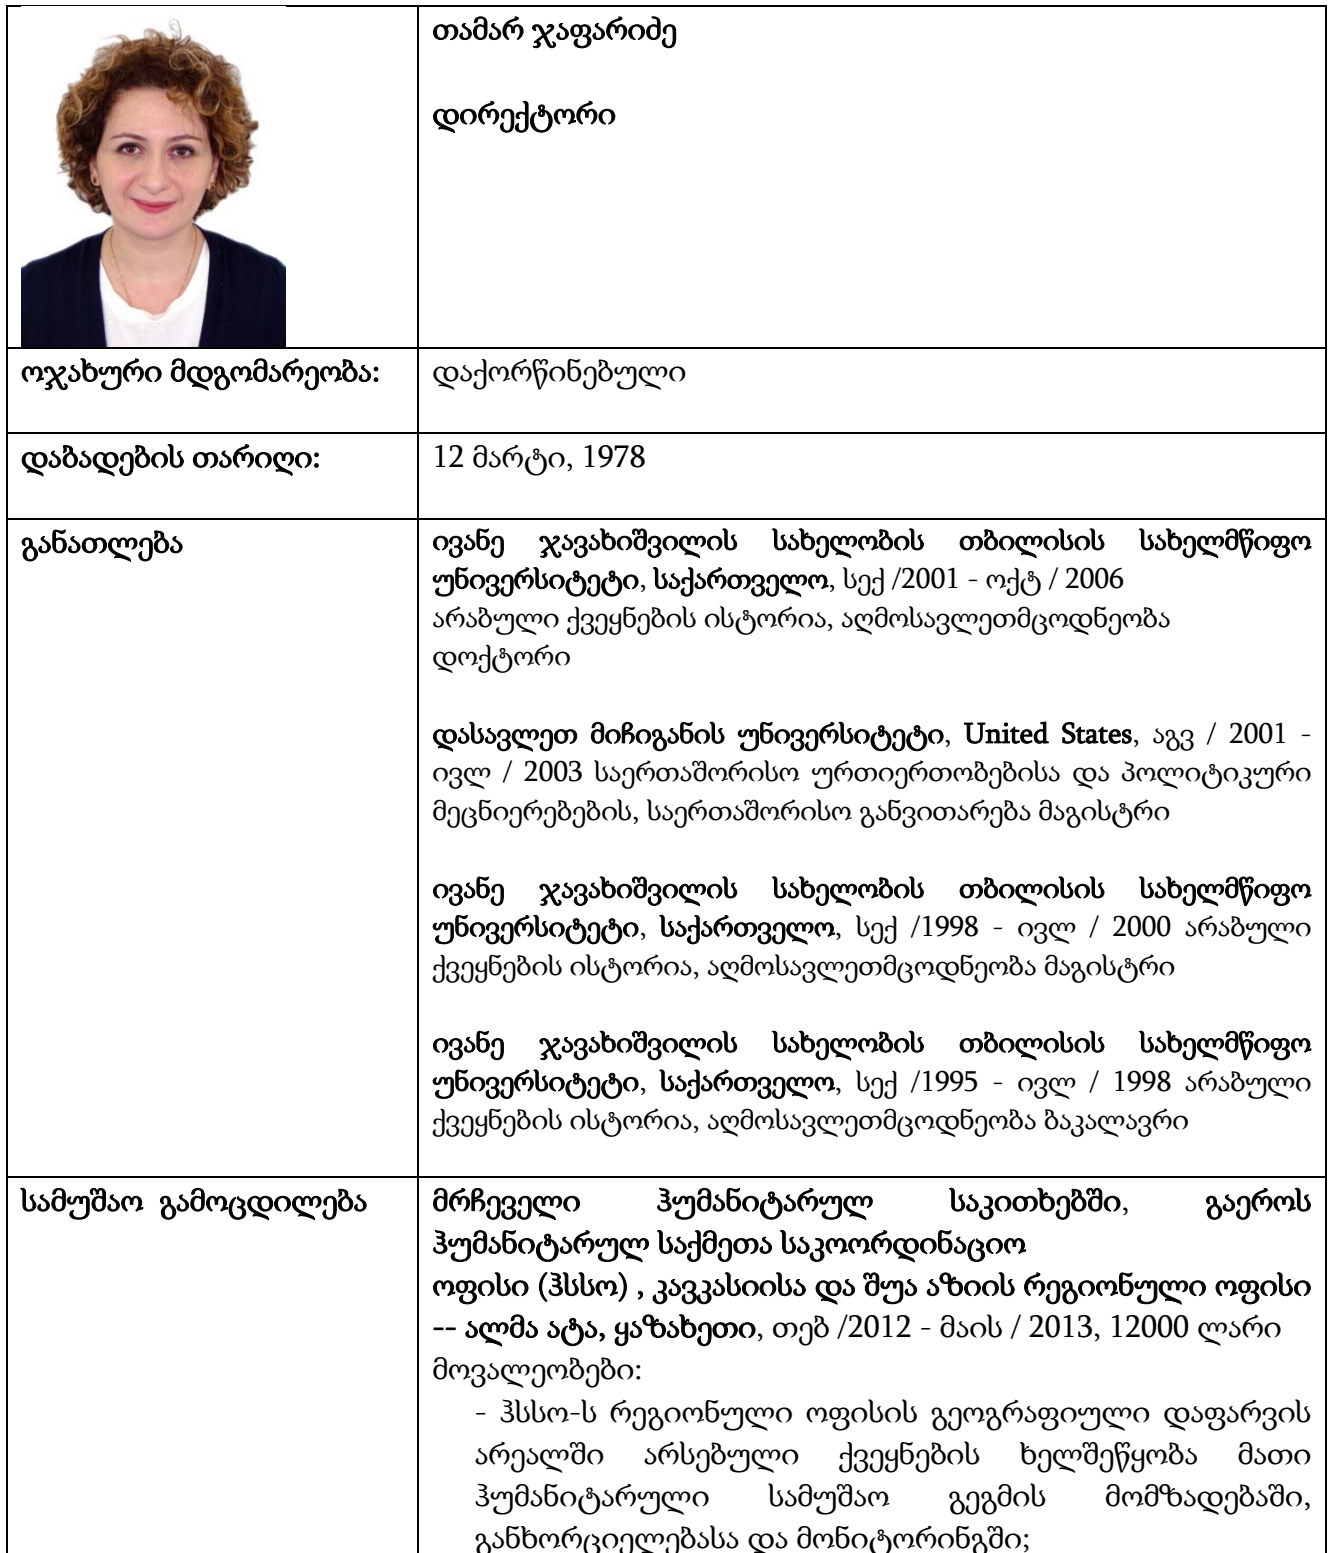 თამარ ჯაფარიძე
დირექტორი
ოჯახური მდგომარეობა:
დაქორწინებული
დაბადების თარიღი:
12 მარტი, 1978
განათლება
ივანე ჯავახიშვილის სახელობის თბილისის სახელმწიფო
უნივერსიტეტი, საქართველო, სექ /2001 - ოქტ / 2006
არაბული ქვეყნების ისტორია, აღმოსავლეთმცოდნეობა
დოქტორი
დასავლეთ მიჩიგანის უნივერსიტეტი, United States, აგვ / 2001 -
ივლ / 2003 საერთაშორისო ურთიერთობებისა და პოლიტიკური
მეცნიერებების, საერთაშორისო განვითარება მაგისტრი
ივანე ჯავახიშვილის სახელობის თბილისის სახელმწიფო
უნივერსიტეტი, საქართველო, სექ /1998 - ივლ / 2000 არაბული
ქვეყნების ისტორია, აღმოსავლეთმცოდნეობა მაგისტრი
ივანე ჯავახიშვილის სახელობის თბილისის სახელმწიფო
უნივერსიტეტი, საქართველო, სექ /1995 - ივლ / 1998 არაბული
ქვეყნების ისტორია, აღმოსავლეთმცოდნეობა ბაკალავრი
სამუშაო გამოცდილება
მრჩეველი ჰუმანიტარულ საკითხებში, გაეროს
ჰუმანიტარულ საქმეთა საკოორდინაციო
ოფისი (ჰსსო) , კავკასიისა და შუა აზიის რეგიონული ოფისი
-- ალმა ატა, ყაზახეთი, თებ /2012 - მაის / 2013, 12000 ლარი
მოვალეობები:
- ჰსსო-ს რეგიონული ოფისის გეოგრაფიული დაფარვის
არეალში არსებული ქვეყნების ხელშეწყობა მათი
ჰუმანიტარული სამუშაო გეგმის მომზადებაში,
განხორციელებასა და მონიტორინგში;